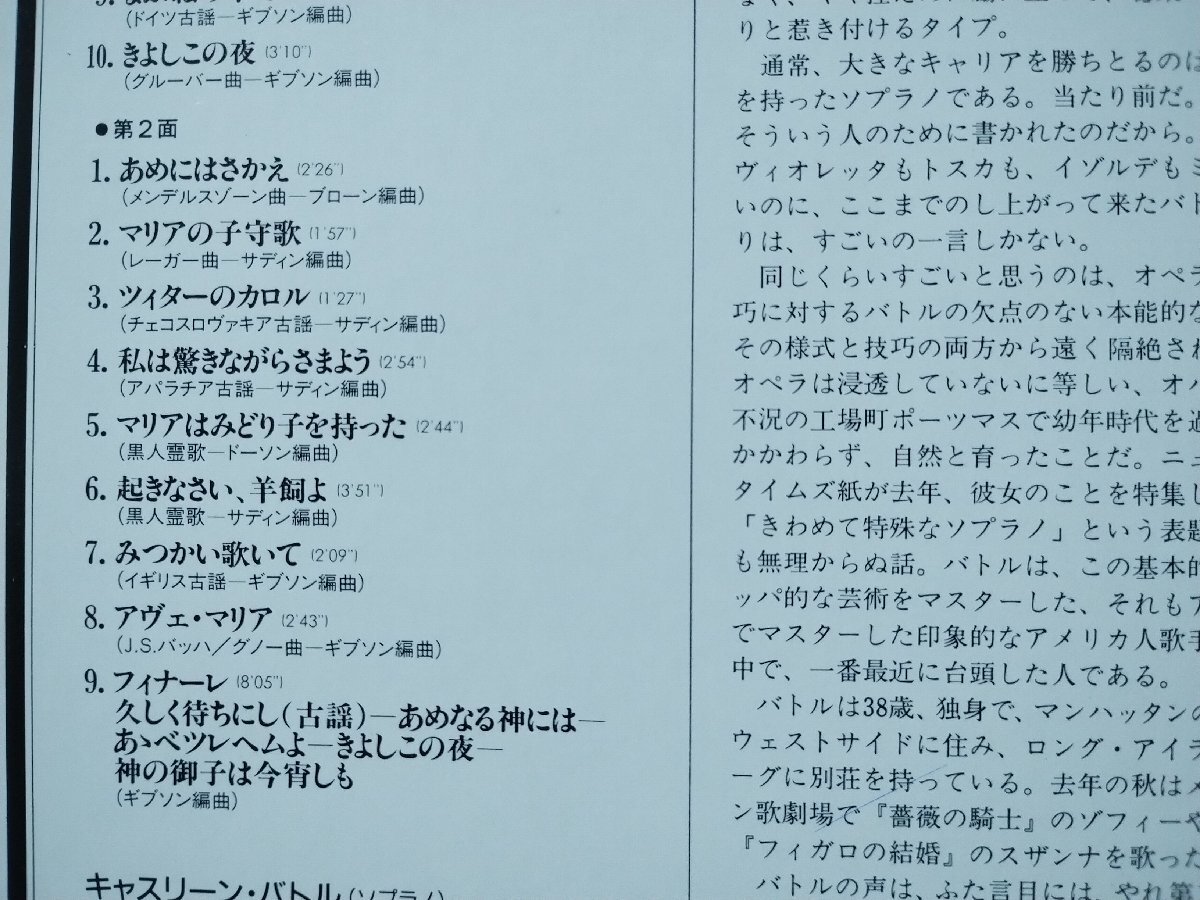 (ドイツ古謡—ギブソン編曲)
10. きよしこの夜 (3'10")
(グルーバー曲—ギブソン編曲)
● 第2面
1. あめにはさかえ (2'26")
(メンデルスゾーン曲—ブローン編曲)
2. マリアの子守歌 (1'57")
(レーガー曲—サディン編曲)
3. ツィターのカロル (1'27")
(チェコスロヴァキア古謡—サディン編曲)
4. 私は驚きながらさまよう (2'54")
(アパラチア古謡—サディン編曲)
5. マリアはみどり子を持った (2'44")
(黒人霊歌—ドーソン編曲)
6. 起きなさい、羊飼よ (3'51")
(黒人霊歌—サディン編曲)
7. みつかい歌いて (2'09")
(イギリス古謡—ギブソン編曲)
8. アヴェ・マリア (2'43")
(J.S.バッハ/グノー曲—ギブソン編曲)
9. フィナーレ (8'05")
久しく待ちにし(古謡)—あめなる神には—
あゝベツレヘムよ—きよしこの夜—
神の御子は今宵しも
(ギブソン編曲)
キャスリーン・バトル(ソプラノ)
りと惹き付けるタイプ。
通常、大きなキャリアを勝ちとるのは
を持ったソプラノである。当たり前だ。
そういう人のために書かれたのだから。
ヴィオレッタもトスカも、イゾルデもミ
いのに、ここまでのし上がって来たバト
りは、すごいの一言しかない。
同じくらいすごいと思うのは、オペラ
巧に対するバトルの欠点のない本能的な
その様式と技巧の両方から遠く隔絶され
オペラは浸透していないに等しい、オハ
不況の工場町ポーツマスで幼年時代を過
かかわらず、自然と育ったことだ。ニュ
タイムズ紙が去年、彼女のことを特集し
「きわめて特殊なソプラノ」という表題
も無理からぬ話。バトルは、この基本的
ッパ的な芸術をマスターした、それもア
でマスターした印象的なアメリカ人歌手
中で、一番最近に台頭した人である。
バトルは38歳、独身で、マンハッタンの
ウェストサイドに住み、ロング・アイラ
ーグに別荘を持っている。去年の秋はメ
ン歌劇場で『薔薇の騎士』のゾフィーや
『フィガロの結婚』のスザンナを歌った
バトルの声は、ふた言目には、やれ第